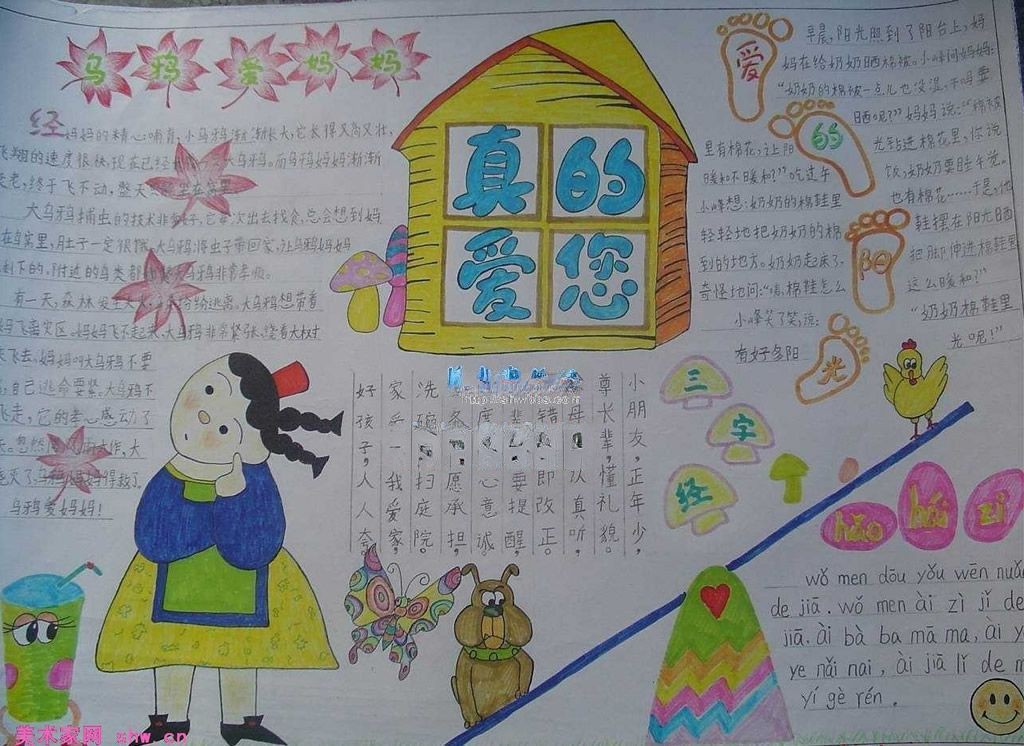 乌鸦爱妈妈
经妈妈的精心哺育,小乌鸦渐渐长大,它长得又高又壮,
飞翔的速度很快,现在已经
大乌鸦。而乌鸦妈妈渐渐
老,终于飞不动,整天
在窝里
大乌鸦捕虫的技术非常好,它每次出去找食,总会想到妈
在窝里,肚子一定很饿,大乌鸦将虫子带回家,让乌鸦妈妈
剩下的,附近的鸟类都
乌鸦非常孝顺。
有一天,森林发生大火,
纷纷逃离,大乌鸦想带着
妈飞离灾区,妈妈飞不起来,大乌鸦非常紧张,绕着大树
飞去,妈妈叫大乌鸦不要
,自己逃命要紧,大乌鸦不
飞走,它的孝心感动了
大作,大
灭了,乌鸦妈妈得救了。
乌鸦爱妈妈!
真的
爱您
爱的阳光
早晨,阳光照到了阳台上,妈
妈在给奶奶晒棉被。小峰问妈妈:
“奶奶的棉被一点儿也没湿,干吗要
晒呢?”妈妈说:“棉被
里有棉花,让阳
光钻进棉花里,你说
暖和不暖和?”吃过午
饭,奶奶要睡午觉。
小峰想:奶奶的棉鞋里
也有棉花……于是,他
轻轻地把奶奶的棉
鞋摆在阳光晒
到的地方。奶奶起床了,
把脚伸进棉鞋里
奇怪地问:“咦,棉鞋怎么
这么暖和?”
小峰笑了笑,说:
“奶奶棉鞋里
有好多阳
光呢!”
三字经
小朋友,正年少,
尊长辈,懂礼貌。
母
认真听,
错
即改正。
辈
要提醒,
度
心意诚。
条
愿承担,
洗碗
扫庭院。
家乎一我爱家,
好孩子,人人夸。
hǎo hái zi
wǒ men dōu yǒu wēn nuǎn
de jiā. wǒ men ài zì jǐ de
jiā. ài bà ba mā ma, ài y
ye nǎi nai, ài jiā lǐ de m
yí gè rén.
美术家网 shw.cn